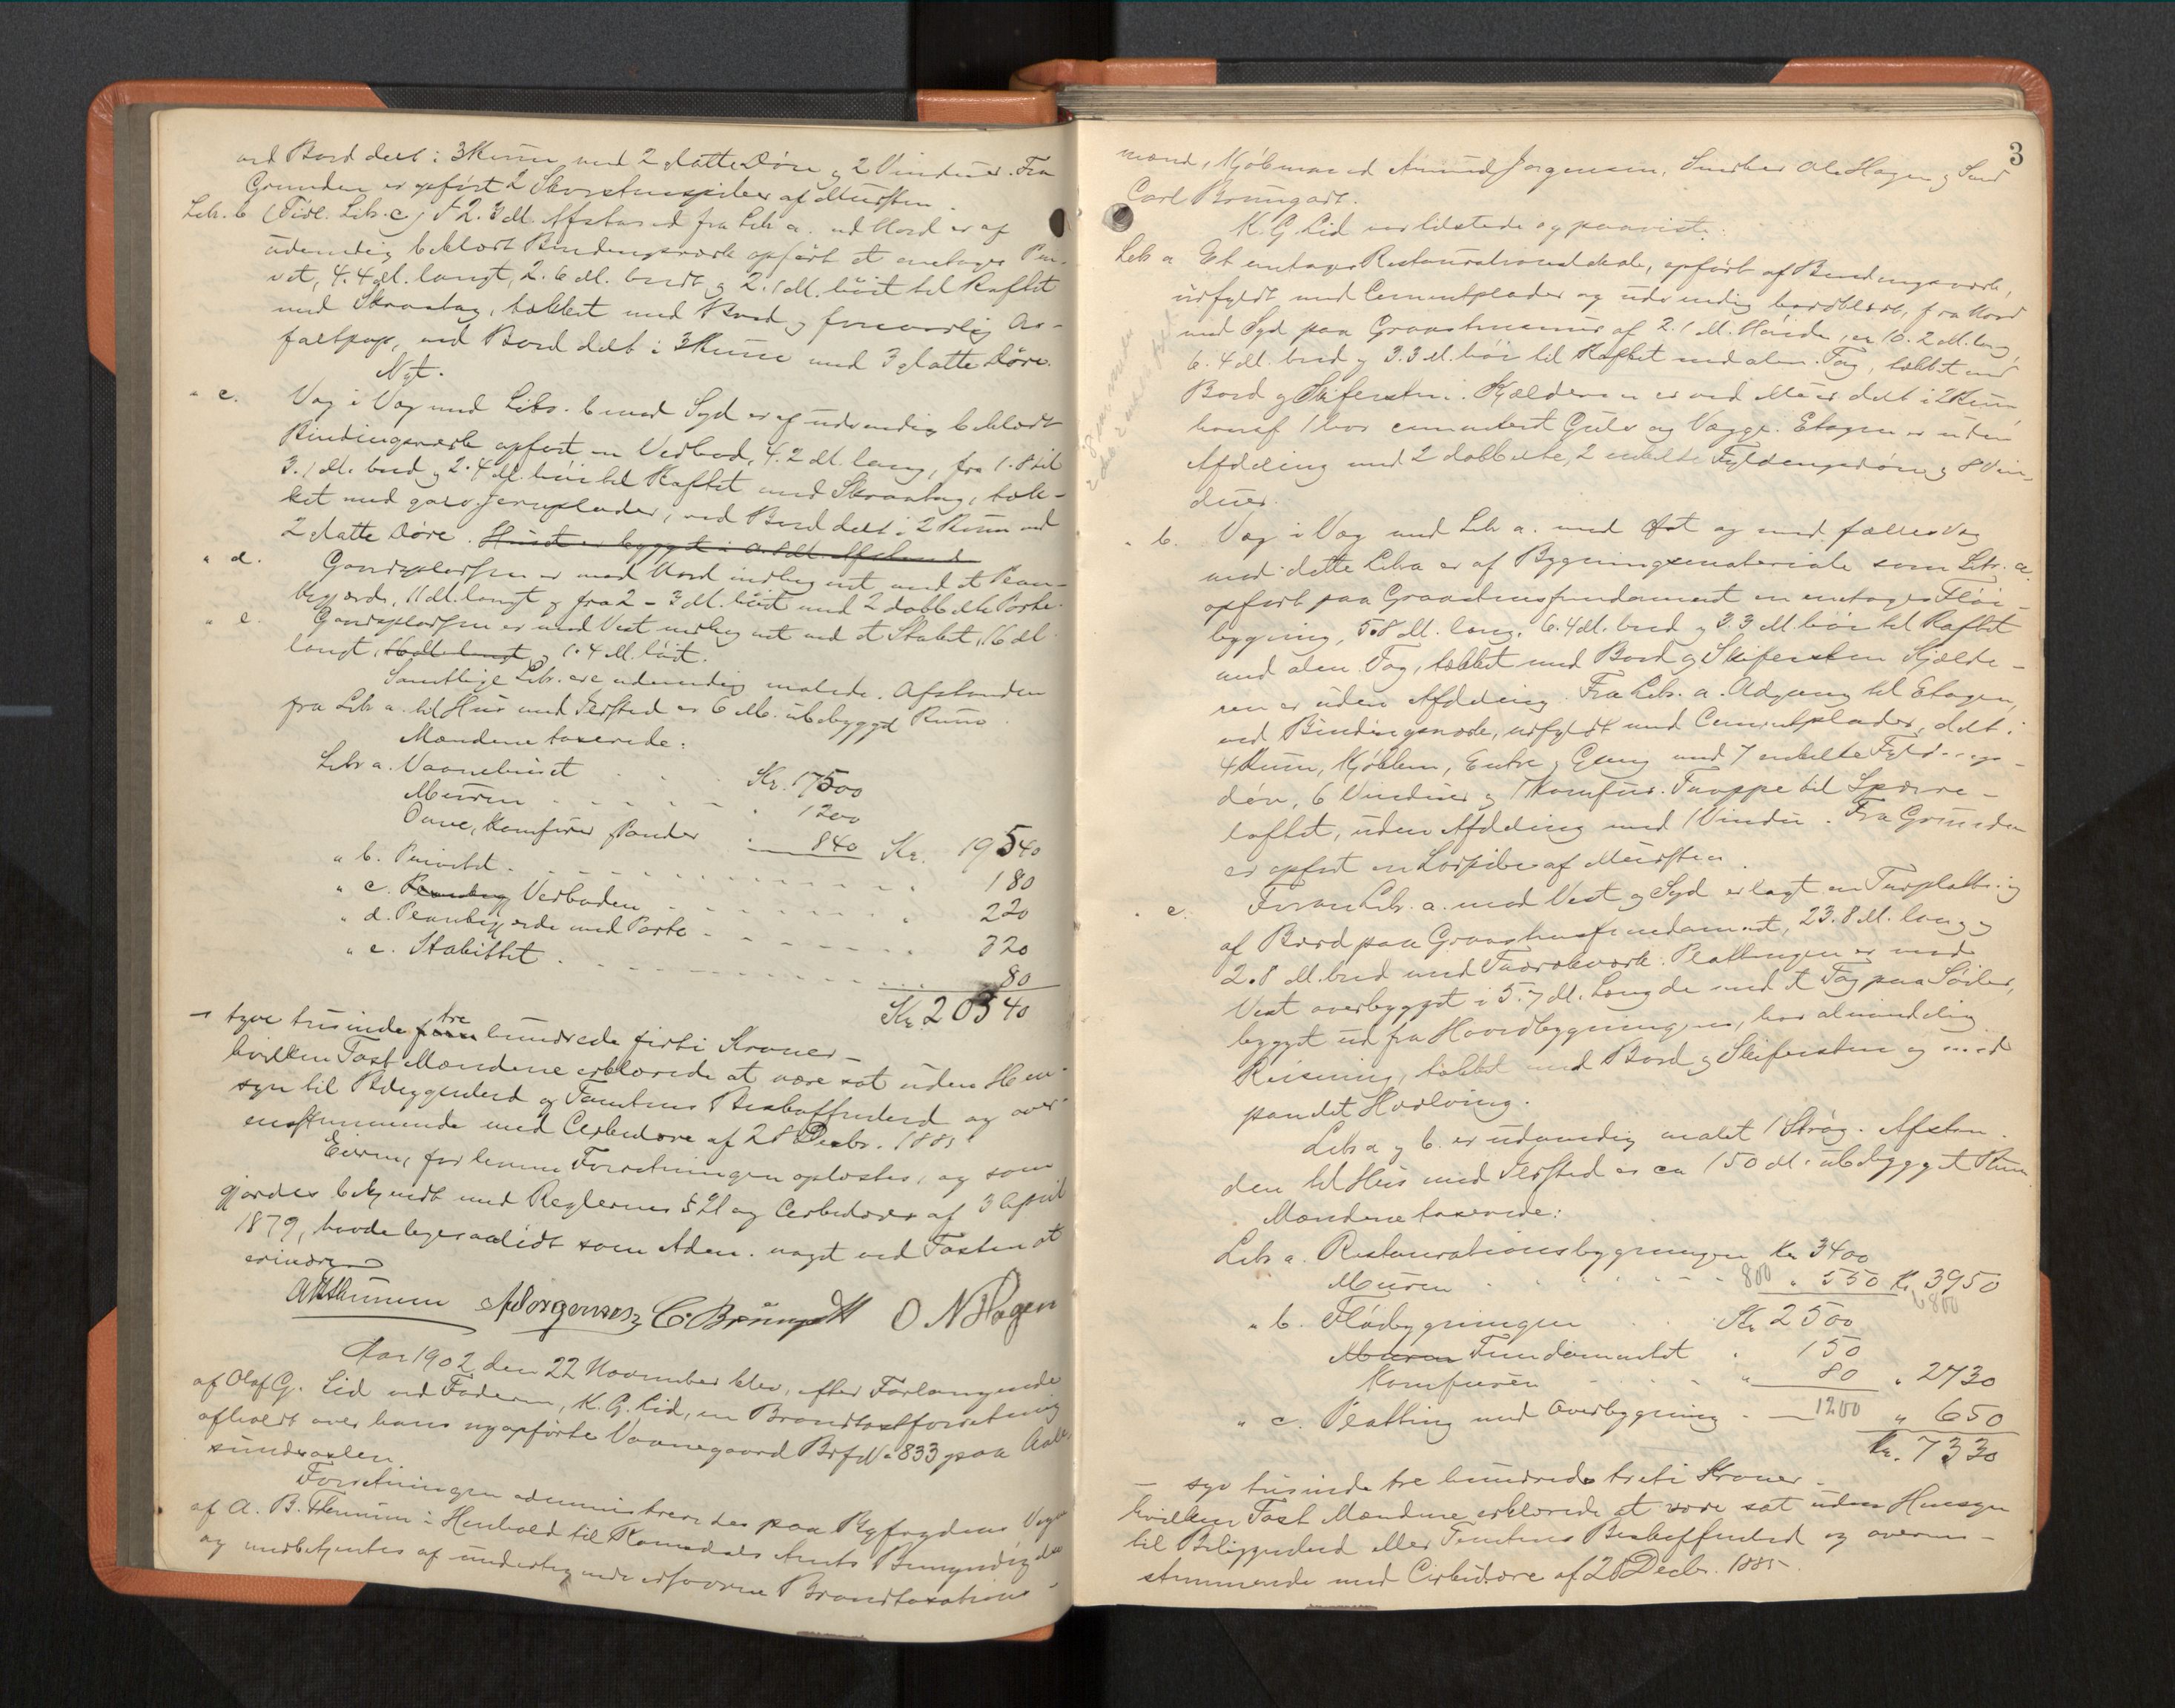 ved Bord delt i 3 Rum med 2 slatte Døre og 2 Vinduer. Fra
Grunden er opført 2 Skorstenspiber af Mursten.
Litr. b (Tidl. Litr. c) I 2.3 M. Afstand fra Litr a. mod Nord er af
udvendig beklædt Bindingsværk opført et enetages Pri-
vet, 4.4 M. langt, 2.6 M. bredt og 2.1 M. høit til Raftet
med Skraatag, tækket med Bord og forsvarlig As-
faltpap, ved Bord delt i 3 Rum med 3 slatte Døre.
Nyt.
" c. Væg i Væg med Litr. b mod Syd er af udvendig beklædt
Bindingsværk opført en Vedbod, 4.2 M. lang, fra 1.8 til
3.1 M. bred og 2.4 M. høi til Raftet med Skraatag, tæk-
ket med galv. Jernplader, ved Bord delt i 2 Rum med
2 slatte Døre. Huset er bygget i Afstand
" d. Gaardspladsen er mod Nord indhegnet med et Plan-
begjærde, 11 M. langt og fra 2 - 3 M. høit med 2 dobbelte Porte.
" e. Gaardspladsen er mod Vest indhegnet med et Stakit, 16 M.
langt, og 1.4 M. høit.
Samtlige Litr. ere udvendig malede. Afstanden
fra Litr a. til Hus med Ildsted er 6 M. ubebygget Rum.
Mændene taxerede:
Litr a. Vaanehuset Kr. 17500
Muren " 1200
Ovne, Komfurer, Pander " 840 Kr. 19540
" b. Privetet 180
" c. Vedboden 220
" d. Planbegjærde med Porte 320
" e. Stakittet 80
Kr. 20340
- tyve tusinde tre hundrede firti Kroner -
hvilken Taxt Mændene erklærede at være sat uden Hen-
syn til Beliggenhed og Tomtens Beskaffenhed og over-
ensstemmende med Cirkulære af 28 Decbr. 1885
Eieren, for hvem Forretningen oplæstes, og som
gjordes bekjendt med Reglernes § 21 og Cirkulære af 3 April
1879, havde ligesaalidt som Adm. noget ved Taxten at
erindre
A B Themmen A Jørgensen C. Brüngodt O N Hagen
Aar 1902 den 22 November blev, efter Forlangende
af Olaf G. Lid ved Faderen, K. G. Lid, en Brandtaxtforretning
afholdt over hans nyopførte Vaanegaard Brf No 833 paa Aale-
sundsaxlen.
Forretningen administreredes paa Byfogdens Vegne
af A. B. Themmen i Henhold til Romsdals Amts Bemyndigelse
og medbetjentes af undertegnede edsvorne Brandtaxations-
3
mænd, Kjøbmand Amund Jørgensen, Snedker Ole Hagen og Smed
Carl Brüngodt.
K. G. Lid var tilstede og paaviste:
Litr a Et enetages Restaurationslokale, opført af Bindingsværk,
udfyldt med Cementplader og udvendig bordklædt, fra Nord
mod Syd paa Graastensmur af 2.1 M. Høide, er 10.2 M. lang,
6.4 M. bred og 3.3 M. høi til Raftet med alm. Tag, tækket med
Bord og Skifersten. Kjælderen er ved Mur delt i 2 Rum,
hvoraf 1 har cementeret Gulv og Vægge. Etagen er uden
Afdeling med 2 dobbelte, 2 enkelte Fyldingsdøre og 8 Vin-
duer.
" b. Væg i Væg med Litr a. mod Øst og med fælles Væg
med dette Litra er af Bygningsmateriale som Litr. a.
opført paa Graastensfundament en enetages Fløi-
bygning, 5.8 M. lang, 6.4 M. bred og 3.3 M. høi til Raftet
med alm. Tag, tækket med Bord og Skifersten. Kjælde-
ren er uden Afdeling. Fra Litr. a. Adgang til Etagen,
ved Bindingsværk, udfyldt med Cementplader, delt i
4 Rum, Kjøkken, Entre og Gang med 7 enkelte Fyldings-
døre, 6 Vinduer og 1 Komfur. Trappe til Sperre-
loftet, uden Afdeling med 1 Vindu. Fra Grunden
er opført en Løspibe af Mursten.
" c. Foran Litr. a. mod Vest og Syd er lagt en Træplatting
af Bord paa Graastensfundament, 23.8 M. lang og
2.8 M. bred med Trærækværk. Plattingen er mod
Vest overbygget i 5.7 M. Længde med et Tag paa Søiler,
bygget ud fra Hovedbygningen, har almindelig
Reisning, tækket med Bord og Skifersten og med
paneelt Hvælving.
Litr a og b. er udvendig malet 1 Strøg. Afstan-
den til Hus med Ildsted er ca 150 M. ubebygget Rum
Mændene taxerede:
Litr a. Restaurationsbygningen Kr 3400
Muren 800 " 550 Kr 3950
6800
" b. Fløibygningen Kr. 2500
Muren Fundamentet " 150
Komfuren " 80 " 2730
" c. Platting med Overbygning 1200 " 650
Kr. 7330
- syv tusinde tre hundrede treti Kroner -
hvilken Taxt Mændene erklærede at være sat uden Hensyn
til Beliggenhed eller Tomtens Beskaffenhed og overens-
stemmende med Cirkulære af 28 Decbr. 1885.